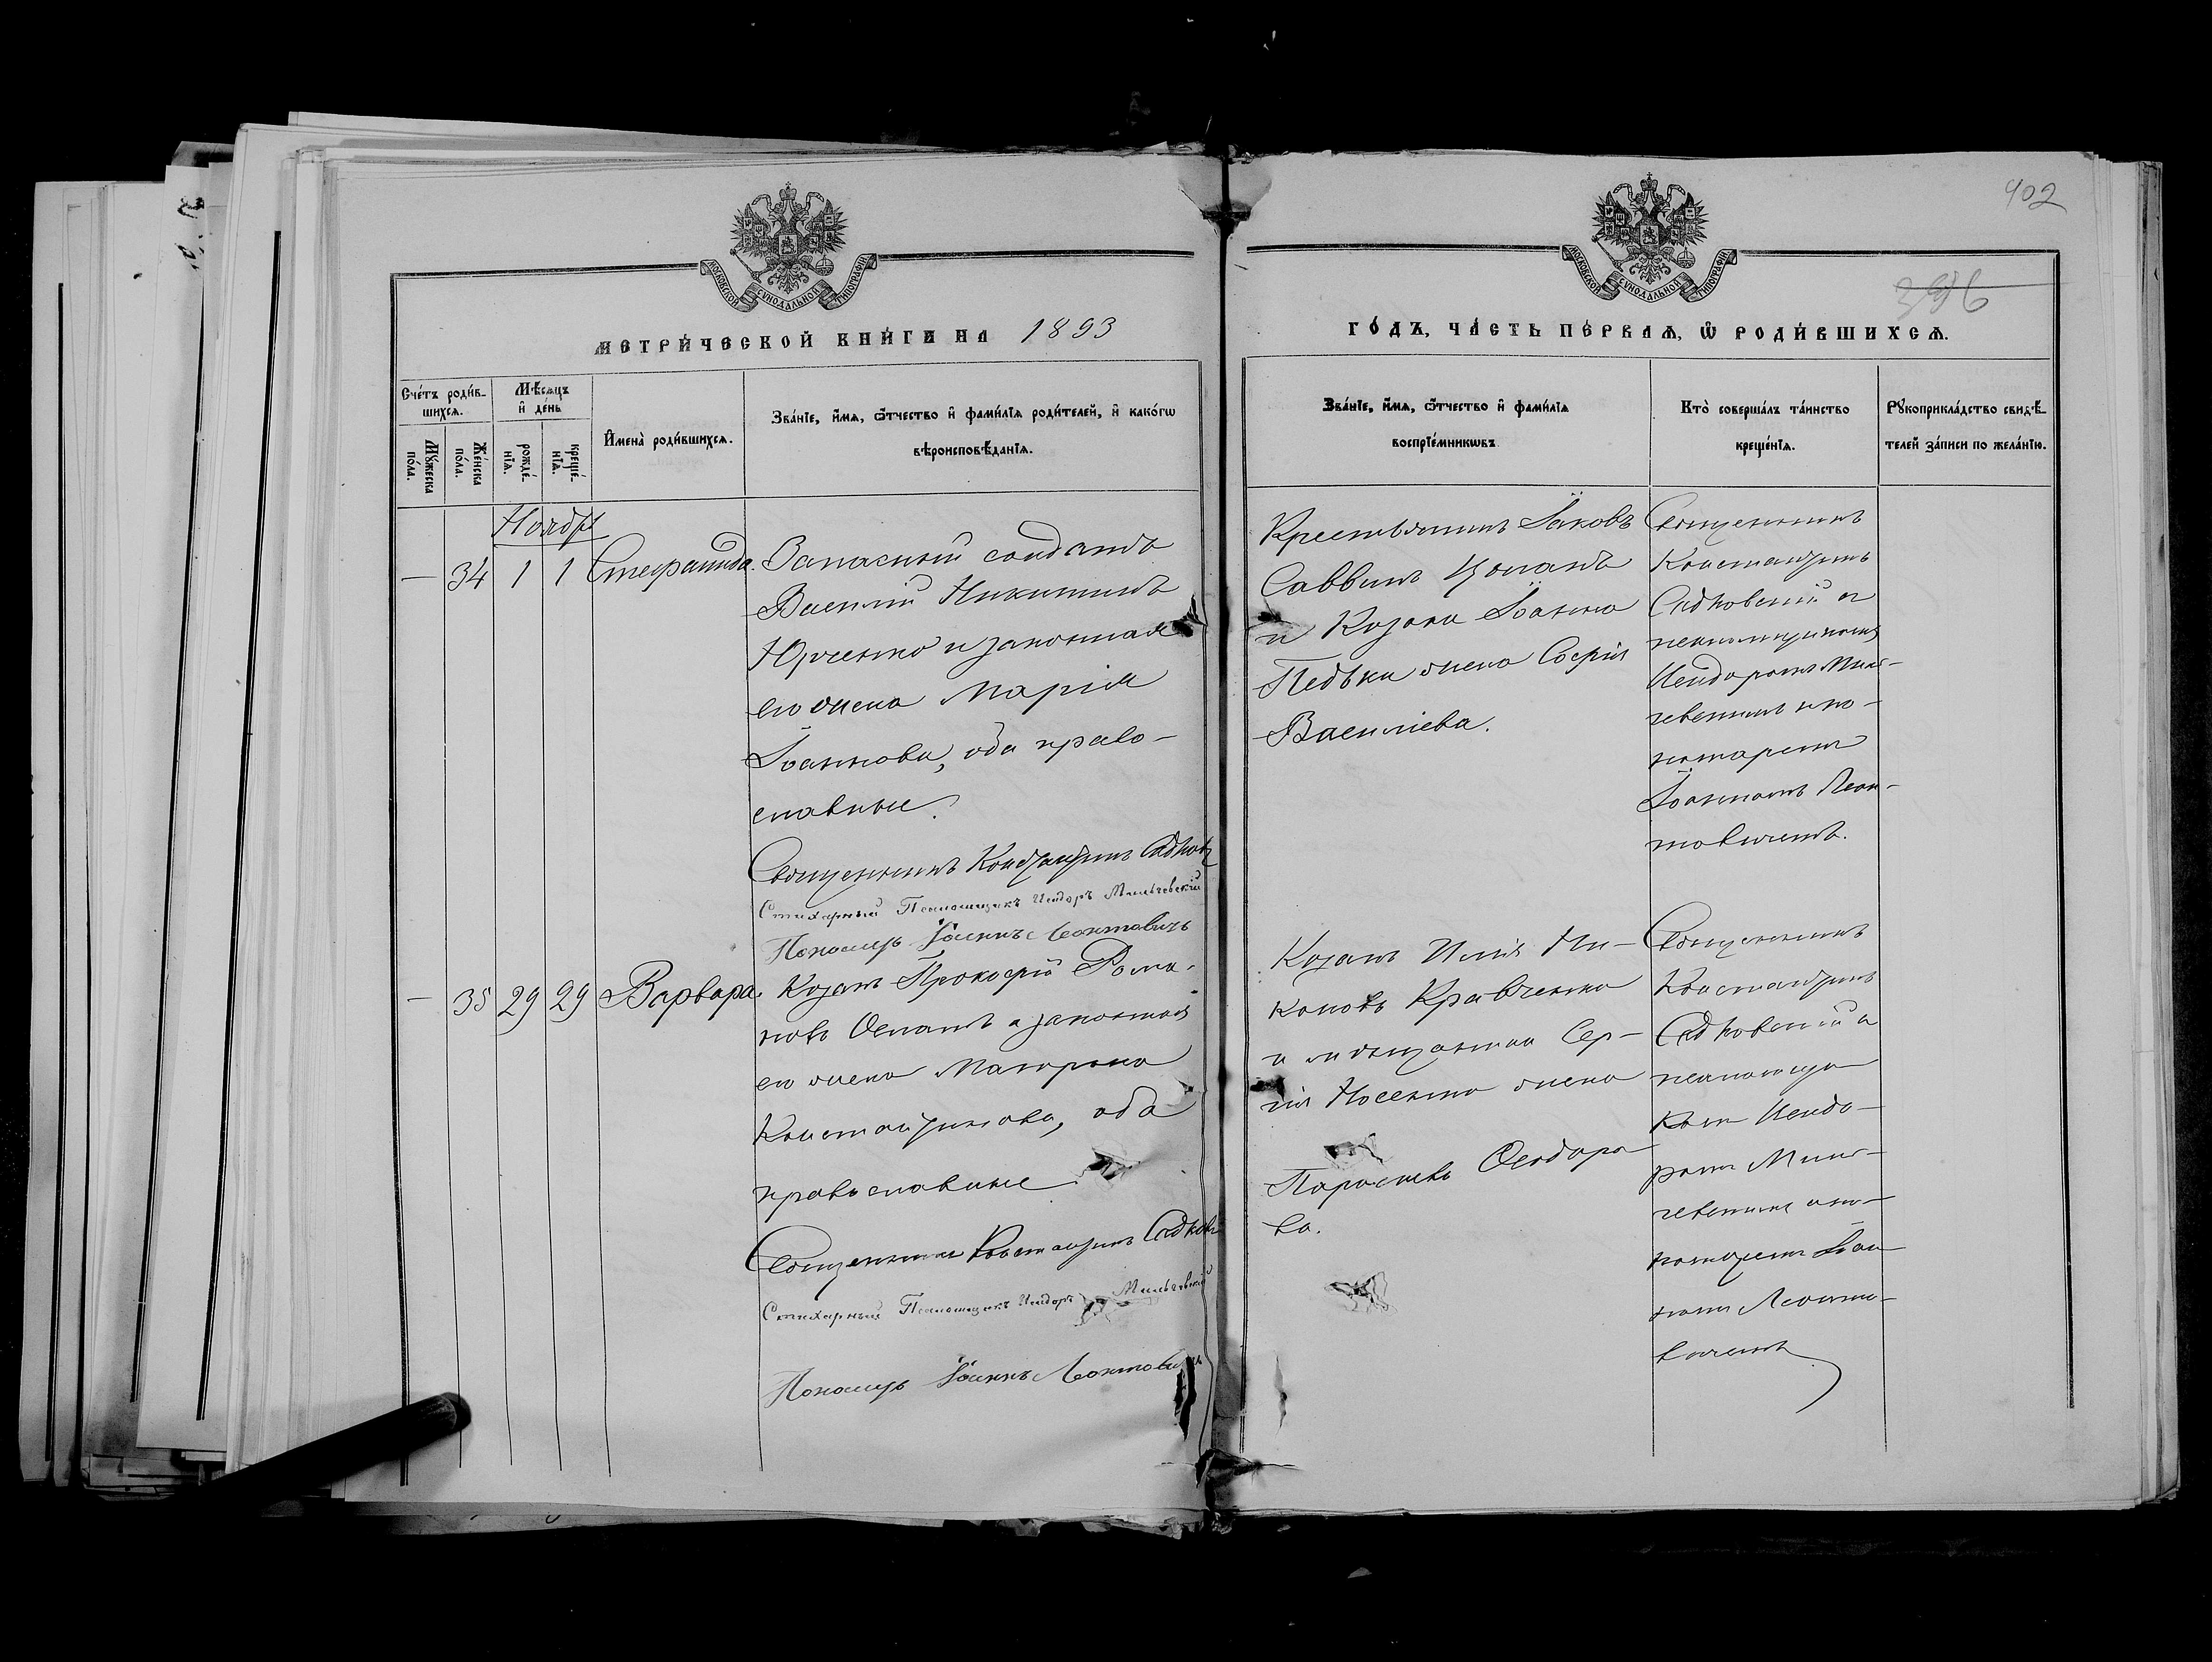 402
396
МОСКОВСКОЙ СѴНОДАЛЬНОЙ ТИПОГРАФІИ
МОСКОВСКОЙ СѴНОДАЛЬНОЙ ТИПОГРАФІИ
МЕТРИ́ЧЕСКОЙ КНИ́ГИ НА 1893
ГО́ДЪ, ЧА́СТЬ ПЕ́РВАѦ, Ѿ РОДИ́ВШИХСѦ.
Сче́тъ роди́в-
шихсѧ.
Мꙋ́жеска
по́ла.
Же́нска
по́ла.
Мѣ́сѧцъ
и҆ де́нь
рожде́-
нїѧ.
креще́-
нїѧ.
И҆мена̀ роди́вшихсѧ.
Зва́нїе, и҆́мѧ, ѻ҆́тчество и҆ фами́лїѧ роди́телей, и҆ како́гѡ
вѣроисповѣ́данїѧ.
Зва́нїе, и҆́мѧ, ѻ҆́тчество и҆ фами́лїѧ
воспрїе́мникѡвъ.
Кто̀ соверша́лъ та́инство
креще́нїѧ.
Рꙋкоприкла́дство свидѣ́-
телей за́писи по жела́нїю.
Ноябр
— 34 1 1 Стефанида.
Запасный солдатъ
Василій Никитинъ
Юрченко и законная
его жена Марія
Іоаннова, оба право-
славные.
Священникъ Константинъ Садков
Стихарный Псаломщикъ Исидоръ Мильчевскій
Пономарь Іоаннъ Леонтовичъ
Крестьянинъ Іаковъ
Саввинъ
и Козака Іоанна
Педька жена Софія
Василіева.
Священникъ
Константинъ
Садковскій съ
псаломщикомъ
Исидоромъ Миль-
чевскимъ и по-
номаремъ
Іоанномъ Леон-
товичемъ.
— 35 29 29 Варвара.
Козакъ Прокофій Рома-
новъ Осмакъ и законная
его жена Матрона
Константинова, оба
православные.
Священникъ Константинъ Садков
Стихарный Псаломщикъ Исидоръ Мильчевскій
Пономарь Іоаннъ Леонтович
Козакъ Илія Ни-
коновъ Кравченко
и мѣщанина Сер-
гія Носенко жена
Параскева Феодоро
ва.
Священникъ
Константинъ
Садковскій съ
псаломщи
комъ Исидо-
ромъ Миль-
чевскимъ и по-
номаремъ Іоан
номъ Леонто-
вичемъ